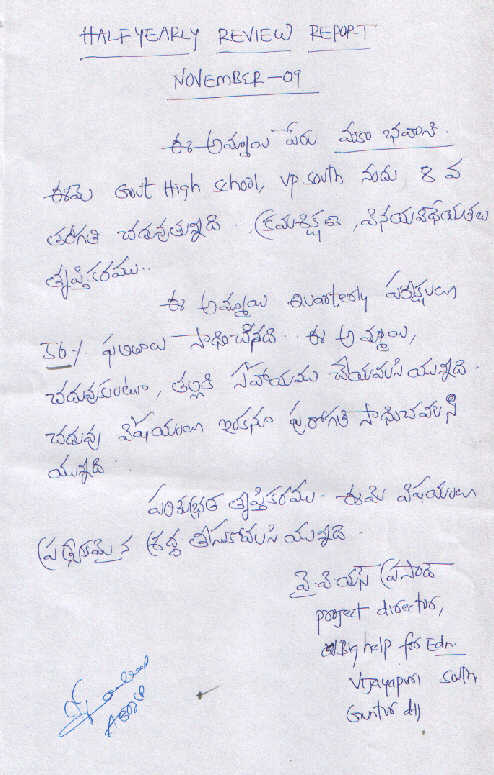 HALF YEARLY REVIEW REPORT
NOVEMBER - 09
ఈ అమ్మాయి పేరు భవాని.
ఈమె Govt High school, VP south నందు 8 వ
తరగతి చదువుతున్నది. క్రమశిక్షణ, వినయవిధేయతలు
తృప్తికరము..
ఈ అమ్మాయి Quarterly పరీక్షలలు
36% ఫలితాలు సాధించినది. ఈ అమ్మాయి,
చదువుకుంటూ, తల్లికి సహాయము చేయవలసి యున్నది.
చదువు విషయంలో ఇంకనూ పురోగతి సాధించవలసి
యున్నది.
పరిశుభ్రత తృప్తికరము. ఈమె విషయంలు
ప్రత్యేకమైన శ్రద్ధ తీసుకోవలసి యున్నది.
వై. వి యస్ ప్రసాద్
project director,
Big help for Edn.
Vijayapuri South
Guntur dt